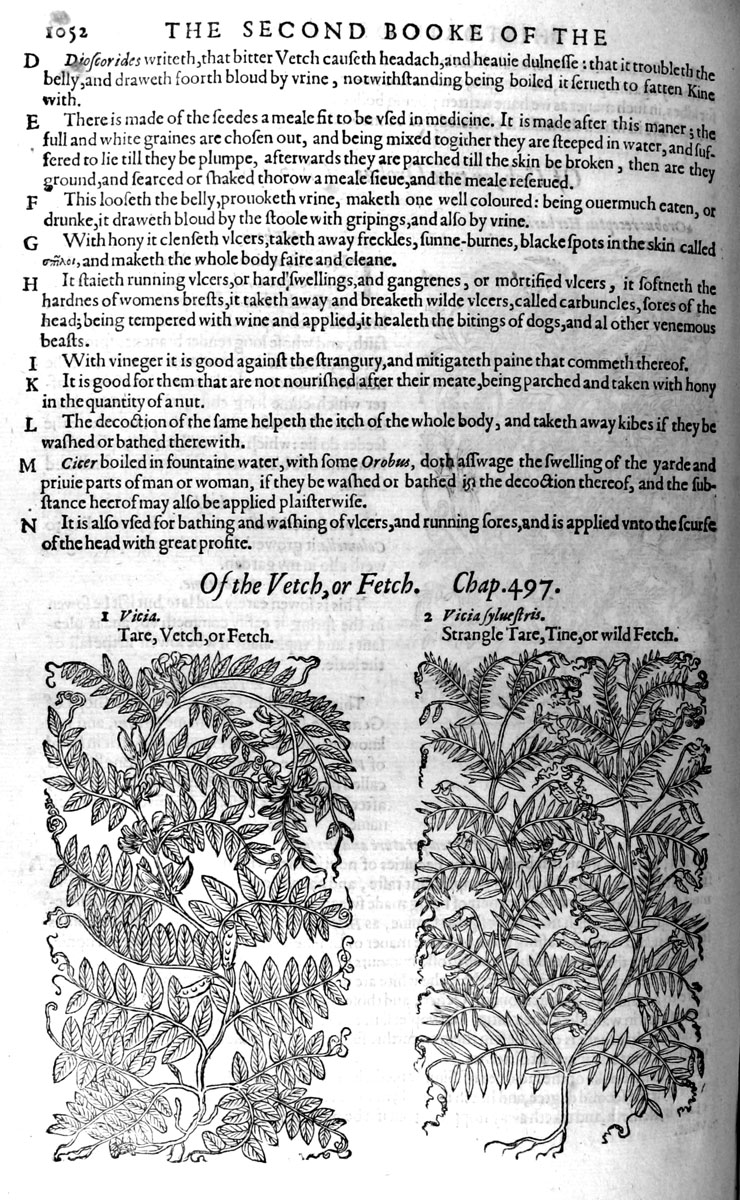 1052 THE SECOND BOOKE OF THE
D Dioſcorides writeth,that bitter Vetch cauſeth headach,and heauie dulneſſe : that it troubleth the
belly,and draweth foorth bloud by vrine , notwithſtanding being boiled it ſerueth to fatten Kine
with.
E There is made of the ſeedes a meale fit to be vſed in medicine. It is made after this maner ; the
full and white graines are choſen out, and being mixed togither they are ſteeped in water, and ſuf-
fered to lie till they be plumpe, afterwards they are parched till the skin be broken , then are they
ground,and ſearced or ſhaked thorow a meale ſieue,and the meale reſerued.
F This looſeth the belly,prouoketh vrine, maketh one well coloured : being ouermuch eaten, or
drunke,it draweth bloud by the ſtoole with gripings,and alſo by vrine.
G With hony it clenſeth vlcers,taketh away freckles, ſunne-burnes, blacke ſpots in the skin called
and maketh the whole body faire and cleane.
H It ſtaieth running vlcers,or hard ſwellings,and gangrenes , or mortified vlcers , it ſoftneth the
hardnes of womens breſts,it taketh away and breaketh wilde vlcers,called carbuncles, ſores of the
head; being tempered with wine and applied,it healeth the bitings of dogs,and al other venemous
beaſts.
I With vineger it is good againſt the ſtrangury,and mitigateth paine that commeth thereof.
K It is good for them that are not nouriſhed after their meate,being parched and taken with hony
in the quantity of a nut.
L The decoction of the ſame helpeth the itch of the whole body , and taketh away kibes if they be
waſhed or bathed therewith.
M Cicer boiled in fountaine water, with ſome Orobus, doth aſſwage the ſwelling of the yarde and
priuie parts of man or woman, if they be waſhed or bathed in the decoction thereof, and the ſub-
ſtance heerof may alſo be applied plaiſterwiſe.
N It is alſo vſed for bathing and waſhing of vlcers,and running ſores,and is applied vnto the ſcurfe
of the head with great profite.
Of the Vetch, or Fetch. Chap.497.
1 Vicia.
Tare, Vetch,or Fetch.
2 Vicia ſylueſtris.
Strangle Tare,Tine,or wild Fetch.